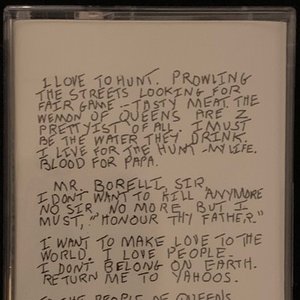 I LOVE TO HUNT. PROWLING
THE STREETS LOOKING FOR
FAIR GAME - TASTY MEAT. THE
WEMON OF QUEENS ARE Z
PRETTYIST OF ALL. I MUST
BE THE WATER THEY DRINK.
I LIVE FOR THE HUNT - MY LIFE.
BLOOD FOR PAPA.
MR. BORELLI, SIR,
I DONT WANT TO KILL ANYMORE
NO SIR, NO MORE BUT I
MUST, "HONOUR THY FATHER."
I WANT TO MAKE LOVE TO THE
WORLD. I LOVE PEOPLE.
I DONT BELONG ON EARTH.
RETURN ME TO YAHOOS.
TO THE PEOPLE OF QUEENS